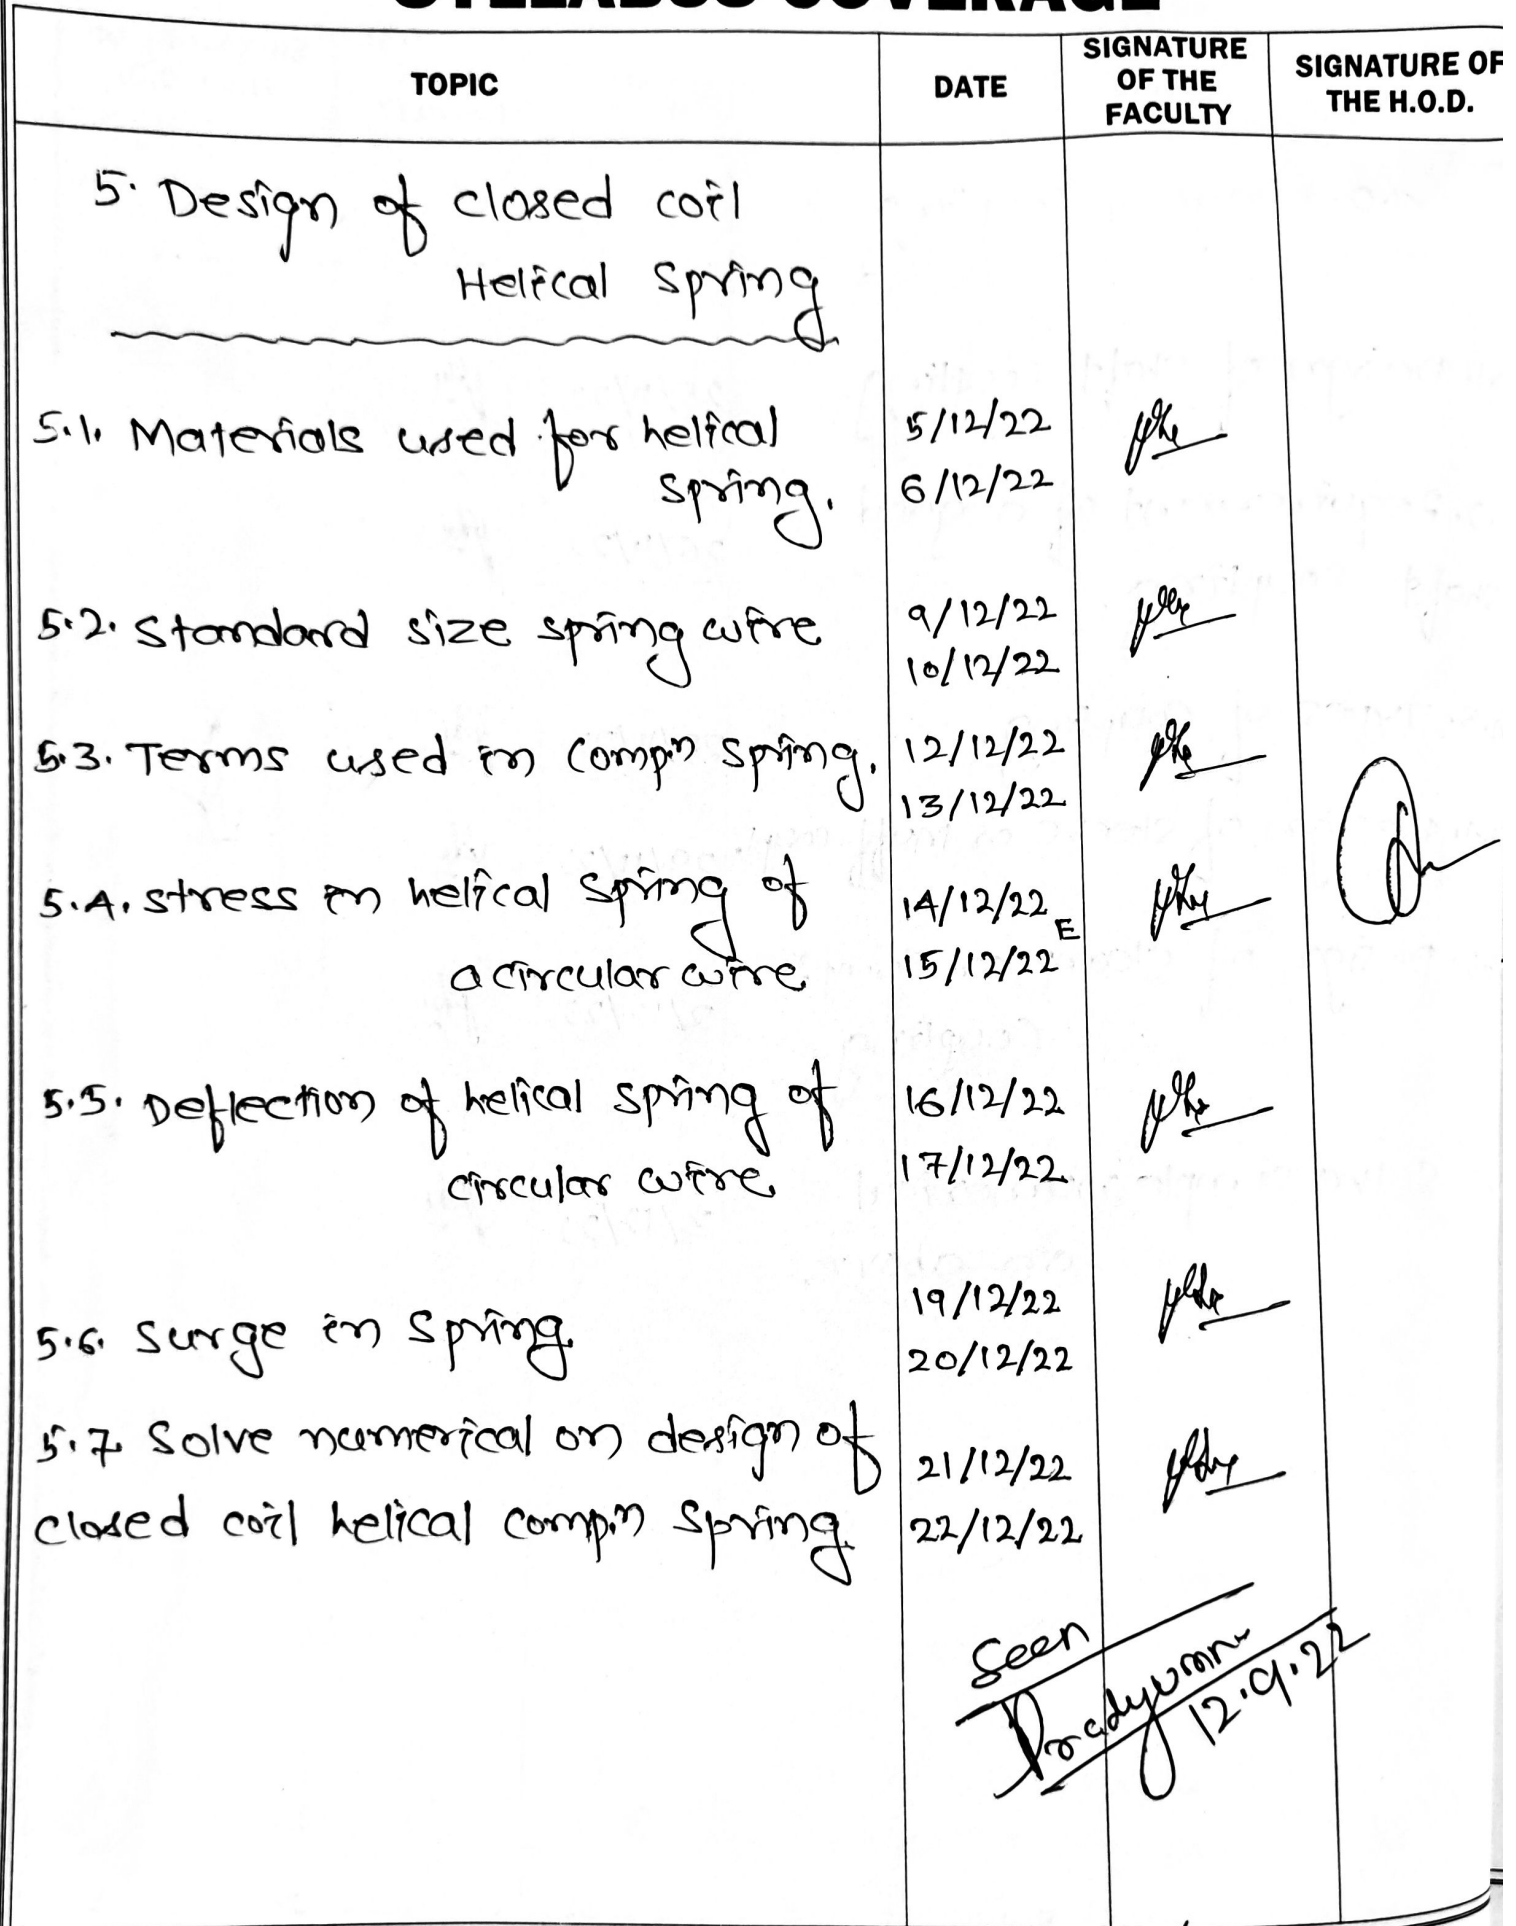 SYLLABUS COVERAGE
TOPIC
DATE
SIGNATURE
OF THE
FACULTY
SIGNATURE OF
THE H.O.D.
5. Design of closed coil
Helical Spring
5.1. Materials used for helical
spring.
5/12/22
6/12/22
5.2. Standard size spring wire
9/12/22
10/12/22
5.3. Terms used in compn spring.
12/12/22
13/12/22
5.4. stress in helical spring of
a circular wire
14/12/22
E
15/12/22
5.5. Deflection of helical spring of
circular wire
16/12/22
17/12/22
5.6. Surge in Spring
19/12/22
20/12/22
5.7 Solve numerical on design of
closed coil helical compn Spring
21/12/22
22/12/22
Seen
Pradyumn
12.9.22